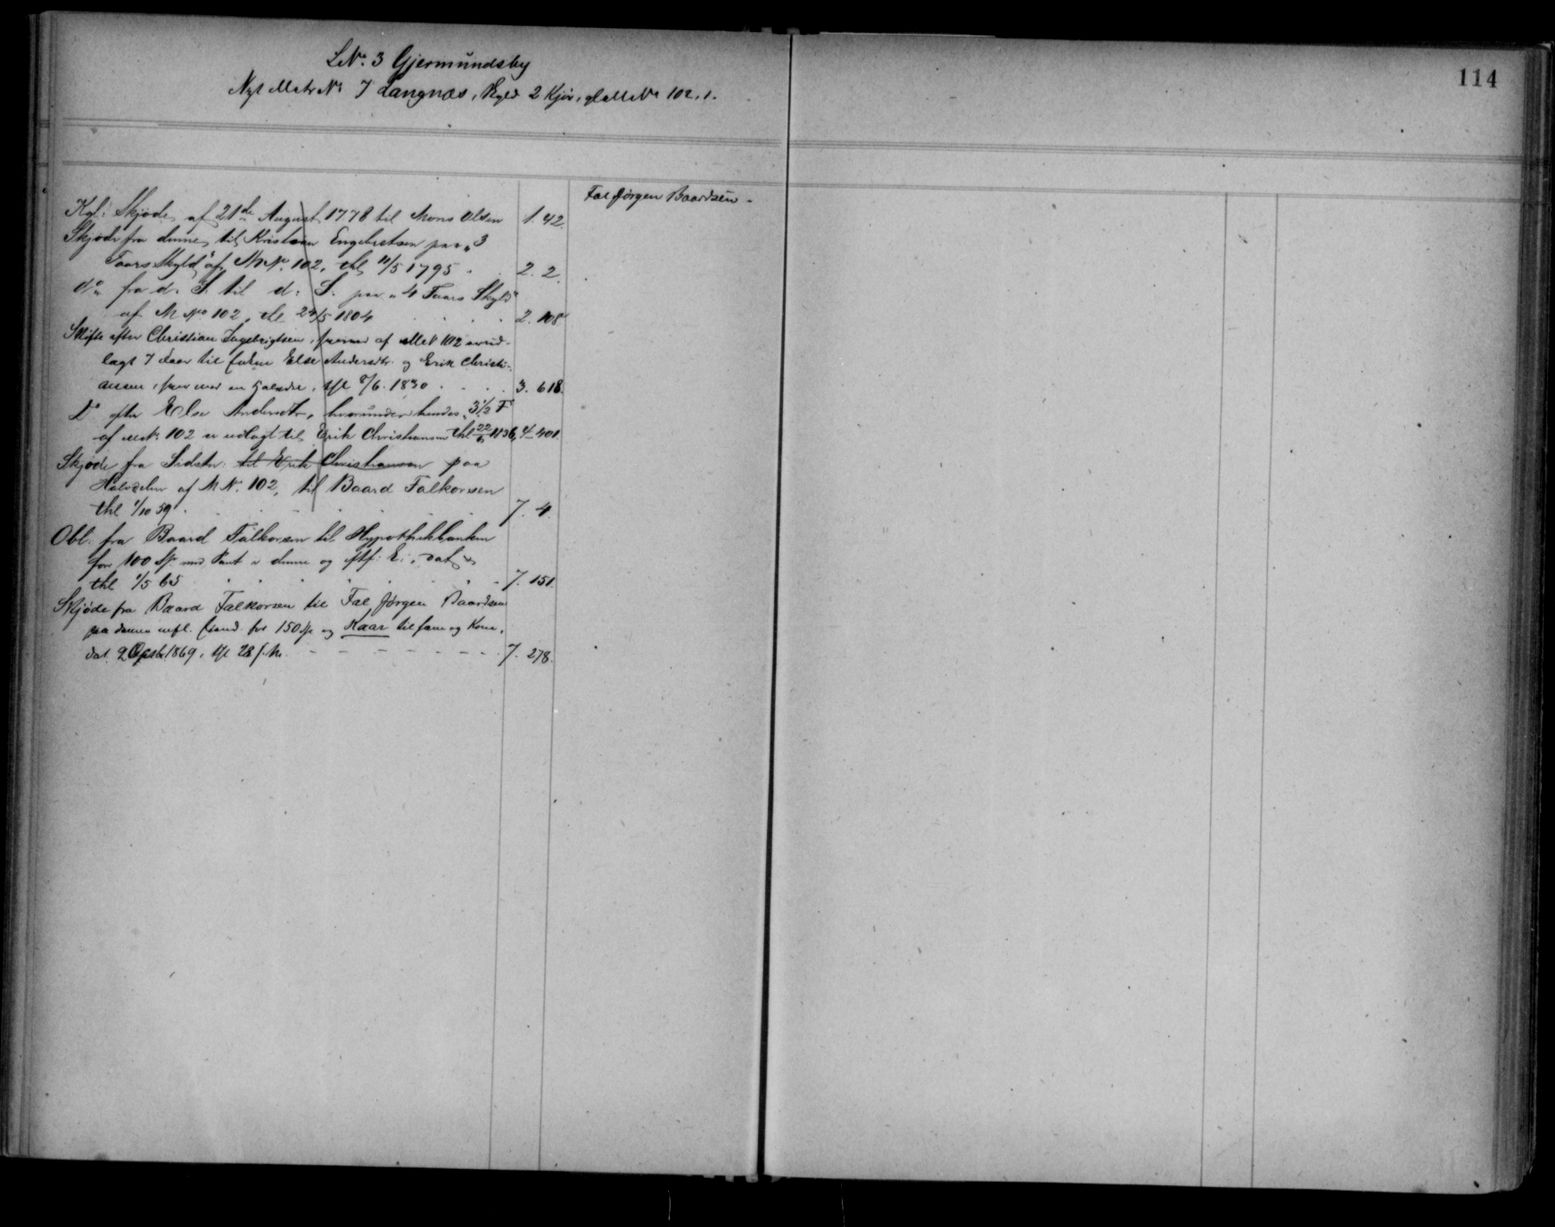 LNo. 3 Gjermundsby
Nyt Matr No 7 Langnæs, Skyld 2 Kjør, gl MNo 102, 1.
114
Fal Jørgen Baardsen
Kgl. Skjøde af 21de August 1778 til Mons Olsen 1. 42.
Skjøde fra denne til Kristian Engebretsen paa 3
Faars Skyld af M No. 102, thl 11/5 1795 2. 2.
do fra d. S. til d. S. paa 4 Faars Skyld
af M No 102, thl 24/5 1804 2. 108
Skifte efter Christian Ingebrigtsen, hvorved af MN 102 er ud-
lagt 7 Faar til Enken Else Andersdtr. og Erik Christi-
ansen, hver med en Halvdel, thl 8/6 1830 3. 618.
Do efter Else Andersdtr, hvorunder hendes 3 1/2 F
af MN 102 er udlagt til Erik Christiansen thl 22/6 1836, 4. 401
Skjøde fra Sidstn. til Erik Christiansen paa
Halvdelen af M N. 102, til Baard Falkorsen
thl 1/10 59 7. 4.
Obl. fra Baard Falkorsen til Hypothekbanken
for 100 Sp. med Pant i denne og eftf. E., dat
thl 1/5 65 7. 151
Skjøde fra Baard Falkorsen til Fal Jørgen Baardsen
paa denne for 150 Sp og Kaar til ham og Kone,
dat. 2 1869, thl 28 s. M. 7. 278.